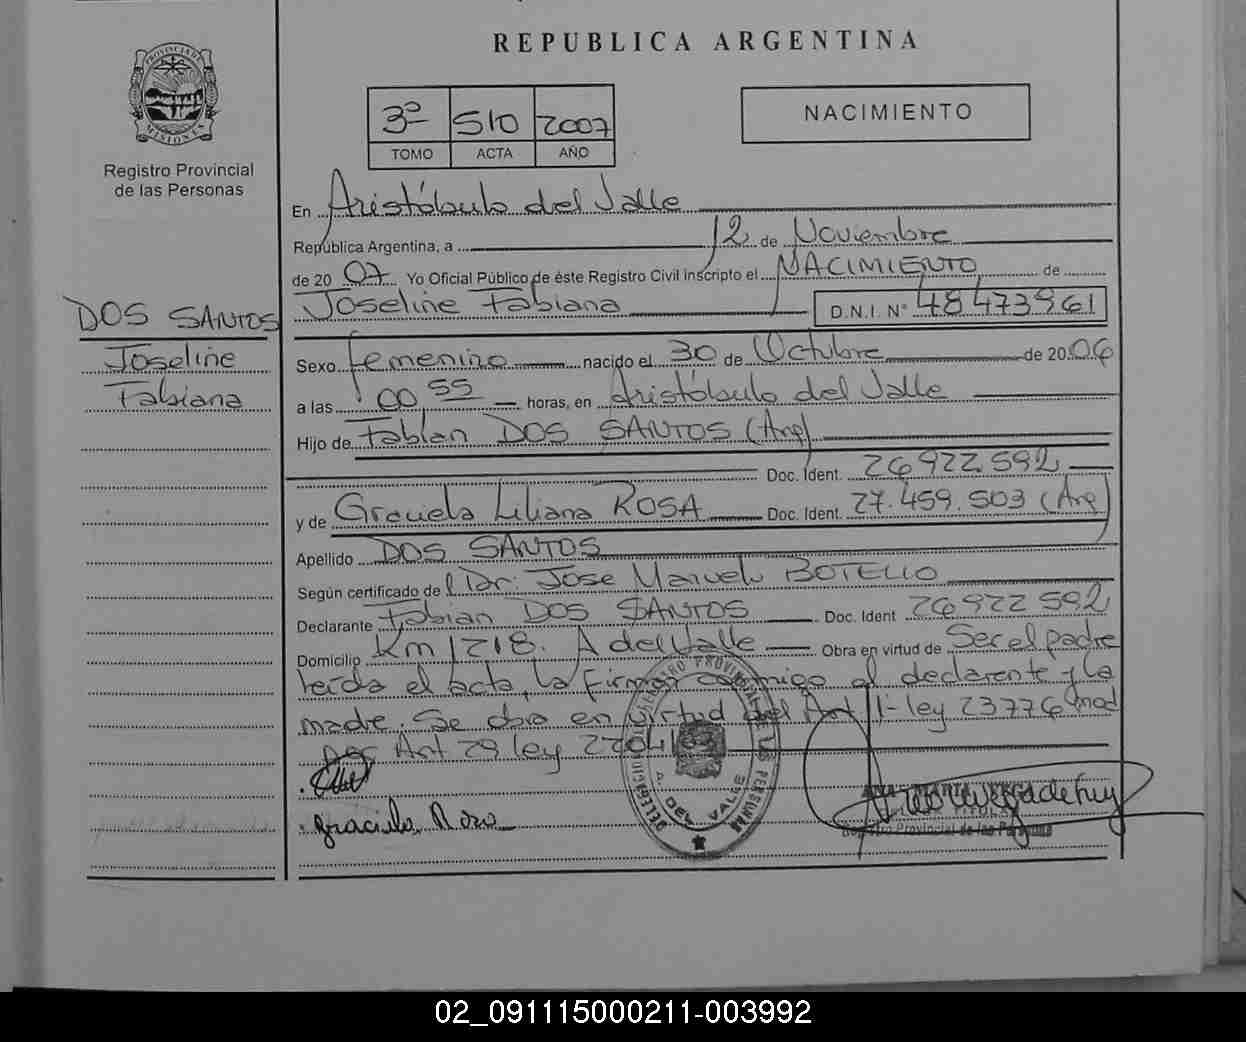 REPUBLICA ARGENTINA
PROVINCIA DE MISIONES
Registro Provincial
de las Personas
3º 510 2007
TOMO ACTA AÑO
NACIMIENTO
En Aristóbulo del Valle
República Argentina, a 12 de Noviembre
de 2007 Yo Oficial Público de éste Registro Civil Inscripto el NACIMIENTO de
Joseline Fabiana D.N.I. Nº 48473961
DOS SANTOS
Joseline
Fabiana
Sexo femenino nacido el 30 de Octubre de 2006
a las 00 55 horas, en Aristóbulo del Valle
Hijo de Fabian DOS SANTOS (Arg)
Doc. Ident. 26922592
y de Graciela Liliana ROSA Doc. Ident. 27.459.503 (Arg)
Apellido DOS SANTOS
Según certificado del Dr: Jose Manuel BOTELLO
Declarante Fabian DOS SANTOS Doc. Ident 26922592
Domicilio Km 1218. A del Valle Obra en virtud de Ser el padre
leida el acta, la firman conmigo el declarante y la
madre. Se obra en virtud del Art 1- ley 23776 mod
por Art 29 ley
DELEGACION REGISTRO PROVINCIAL DE LAS PERSONAS
A. DEL VALLE
Graciela Rosa
TITULAR
Registro Provincial de las Personas
02_091115000211-003992